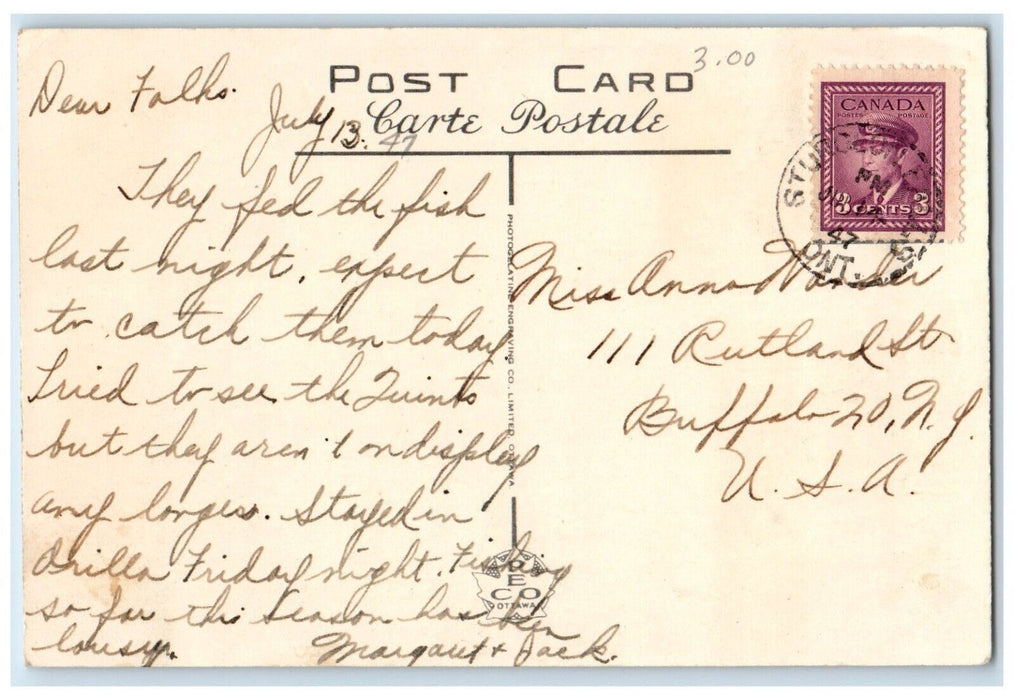 3.00
POST CARD
Carte Postale
Dear Folks.
July 13. 47
They fed the fish
last night, expect
to catch them today.
Tried to see the Quints
but they aren't on display
any longer. Stayed in
Orillia Friday night. Fishing
so far this season has been
lousy. Margaret + Jack.
PHOTOGELATINE ENGRAVING CO. LIMITED, OTTAWA
PECO
OTTAWA
CANADA
POSTES POSTAGE
3 CENTS 3
PM
47
ONT.
Miss Anna
111 Rutland St
Buffalo 20, N.Y.
U. S. A.